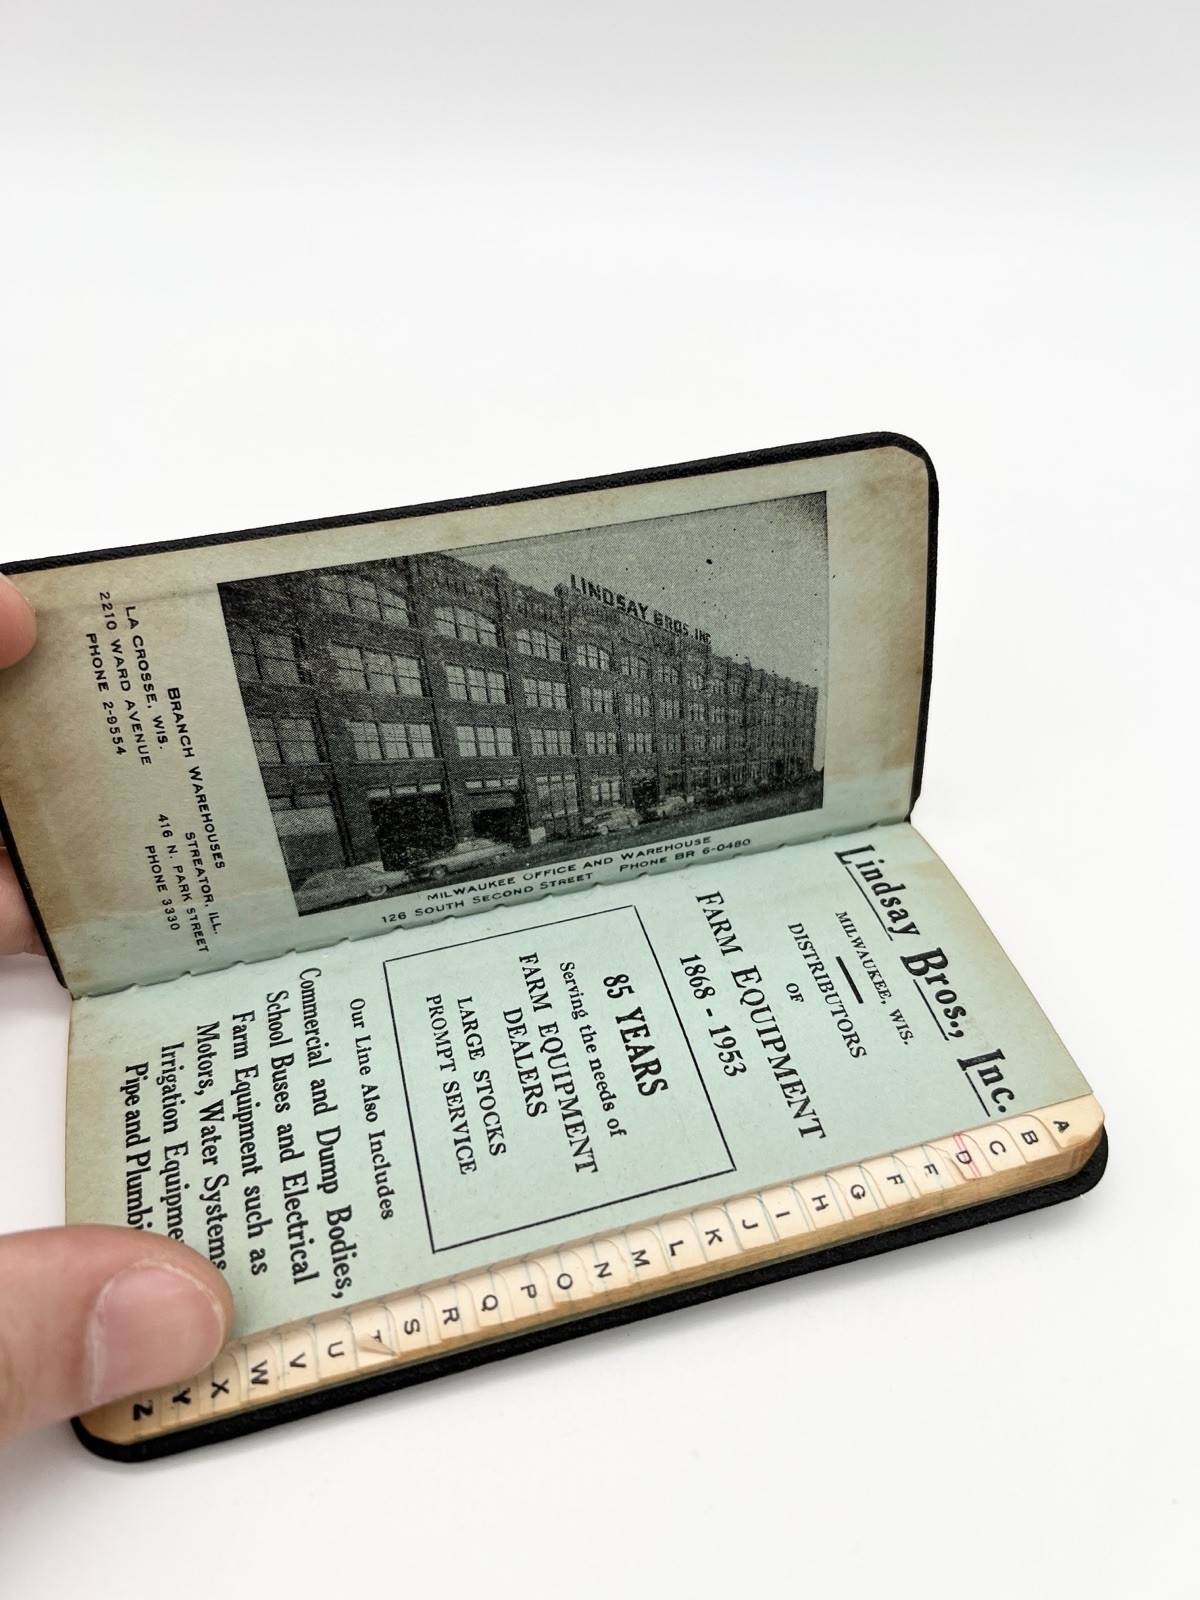 LINDSAY BROS. INC
MILWAUKEE OFFICE AND WAREHOUSE
126 SOUTH SECOND STREET PHONE BR 6-0480
BRANCH WAREHOUSES
LA CROSSE, WIS.
2210 WARD AVENUE
PHONE 2-9554
STREATOR, ILL.
416 N. PARK STREET
PHONE 3330
Lindsay Bros., Inc.
MILWAUKEE, WIS.
DISTRIBUTORS
OF
FARM EQUIPMENT
1868 - 1953
85 YEARS
Serving the needs of
FARM EQUIPMENT
DEALERS
LARGE STOCKS
PROMPT SERVICE
Our Line Also Includes
Commercial and Dump Bodies,
School Buses and Electrical
Farm Equipment such as
Motors, Water Systems
Irrigation
Pipe and
A
B
C
D
E
F
G
H
I
J
K
L
M
N
O
P
Q
R
S
T
U
V
W
X
Y
Z